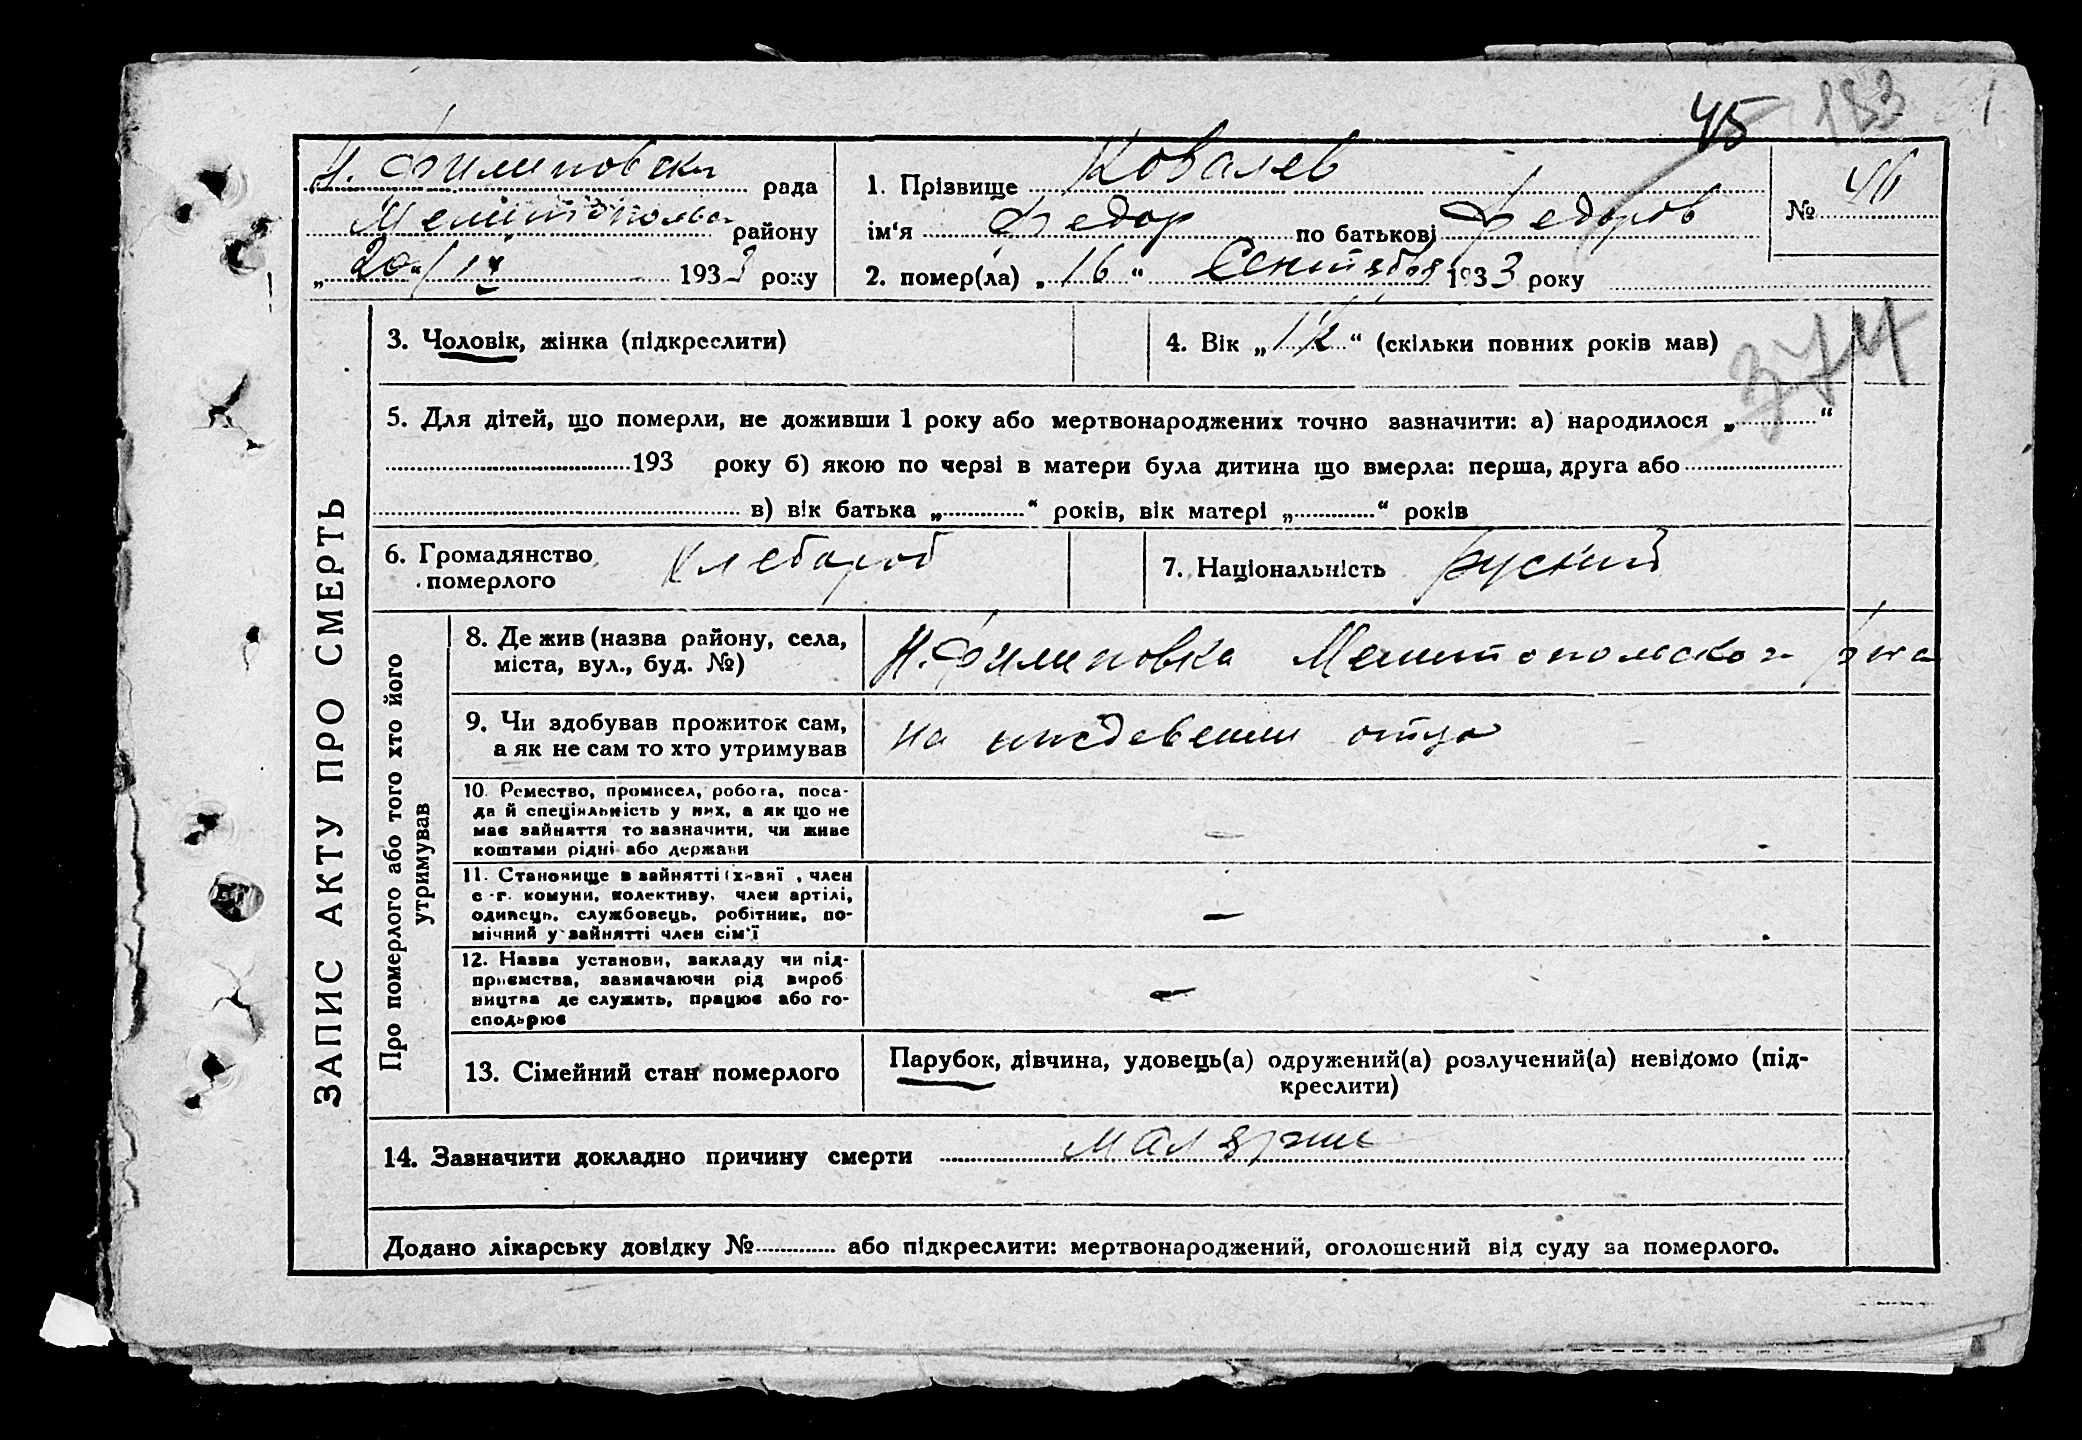 45 183
Н. Филиповска рада
Мелитопольск району
„20“/IX 1933 року
1. Прізвище Ковалев
ім‘я Федор по батькові Федоров
2. помер(ла) „16“ Сентября 1933 року
№
ЗАПИС АКТУ ПРО СМЕРТЬ
3. Чоловік, жінка (підкреслити)
4. Вік „ “ (скільки повних років мав)
374
5. Для дітей, що померли, не доживши 1 року або мертвонароджених точно зазначити: а) народилося „ “
193 року б) якою по черзі в матери була дитина що вмерла: перша, друга або
в) вік батька „ “ років, вік матері „ “ років
6. Громадянство
померлого
Хлебороб
7. Національність Руский
Про померлого або того хто його
утримував
8. Де жив (назва району, села,
міста, вул., буд. №)
Н. Филиповка Мелитопольског р-на
9. Чи здобував прожиток сам,
а як не сам то хто утримував
на иждевении отца
10. Ремество, промисел, робота, поса-
да й спеціяльність у них, а як що не
має зайняття то зазначити, чи живе
коштами рідні або держави
–
11. Становище в зайнятті (хазяї , член
с -г. комуни, колективу, член артілі,
одинець, службовець, робітник, по-
мічний у зайнятті член сім‘ї
–
12. Назва установи, закладу чи під-
приємства, зазначаючи рід вироб
ництва де служить, працює або го-
сподарює
–
13. Сімейний стан померлого
Парубок, дівчина, удовець(а) одружений(а) розлучений(а) невідомо (під-
креслити)
14. Зазначити докладно причину смерти малярие
Додано лікарську довідку № або підкреслити: мертвонароджений, оголошений від суду за померлого.